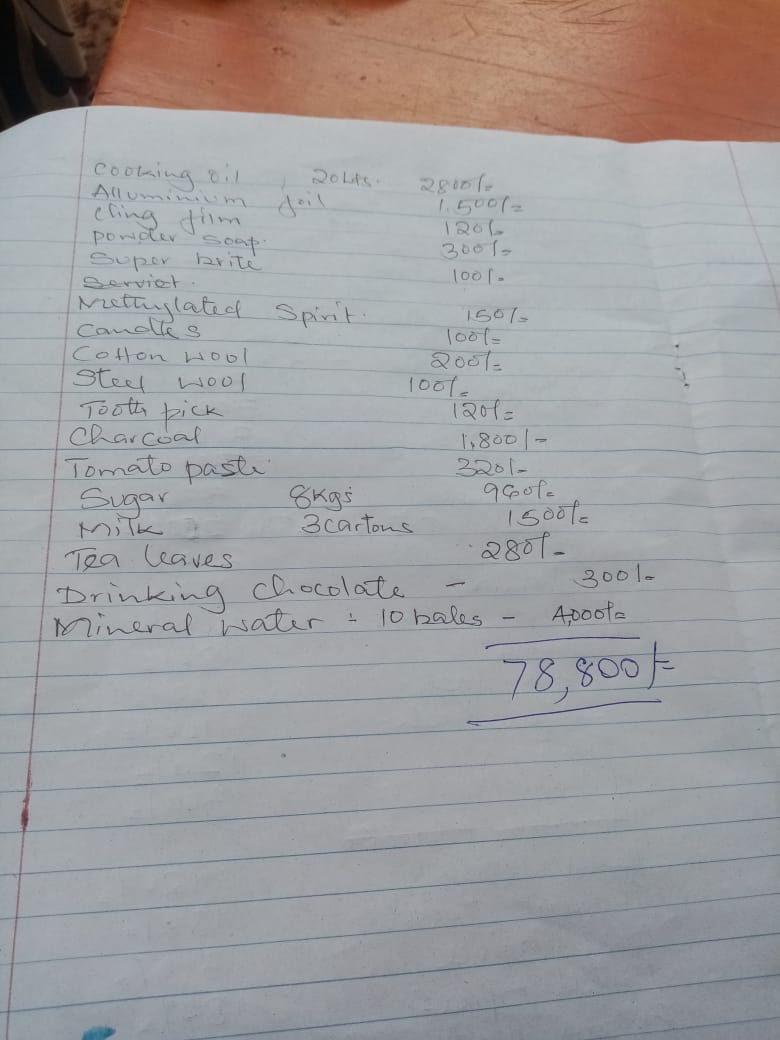 Cooking oil, 20Lts. 2800/=
Alluminium foil 1,500/=
Cling film 120/=
powder soap. 300/=
Super brite 100/=
Serviet.
Mettuylated Spirit. 150/=
Candles 100/=
Cotton wool 200/=
Steel wool 100/=
Tooth pick 120/=
Charcoal 1,800/=
Tomato paste 320/=
Sugar 8kgs 960/=
Milk 3 cartons 1500/=
Tea leaves 280/=
Drinking chocolate - 300/=
Mineral water : 10 bales - 4,000/=
78,800/=